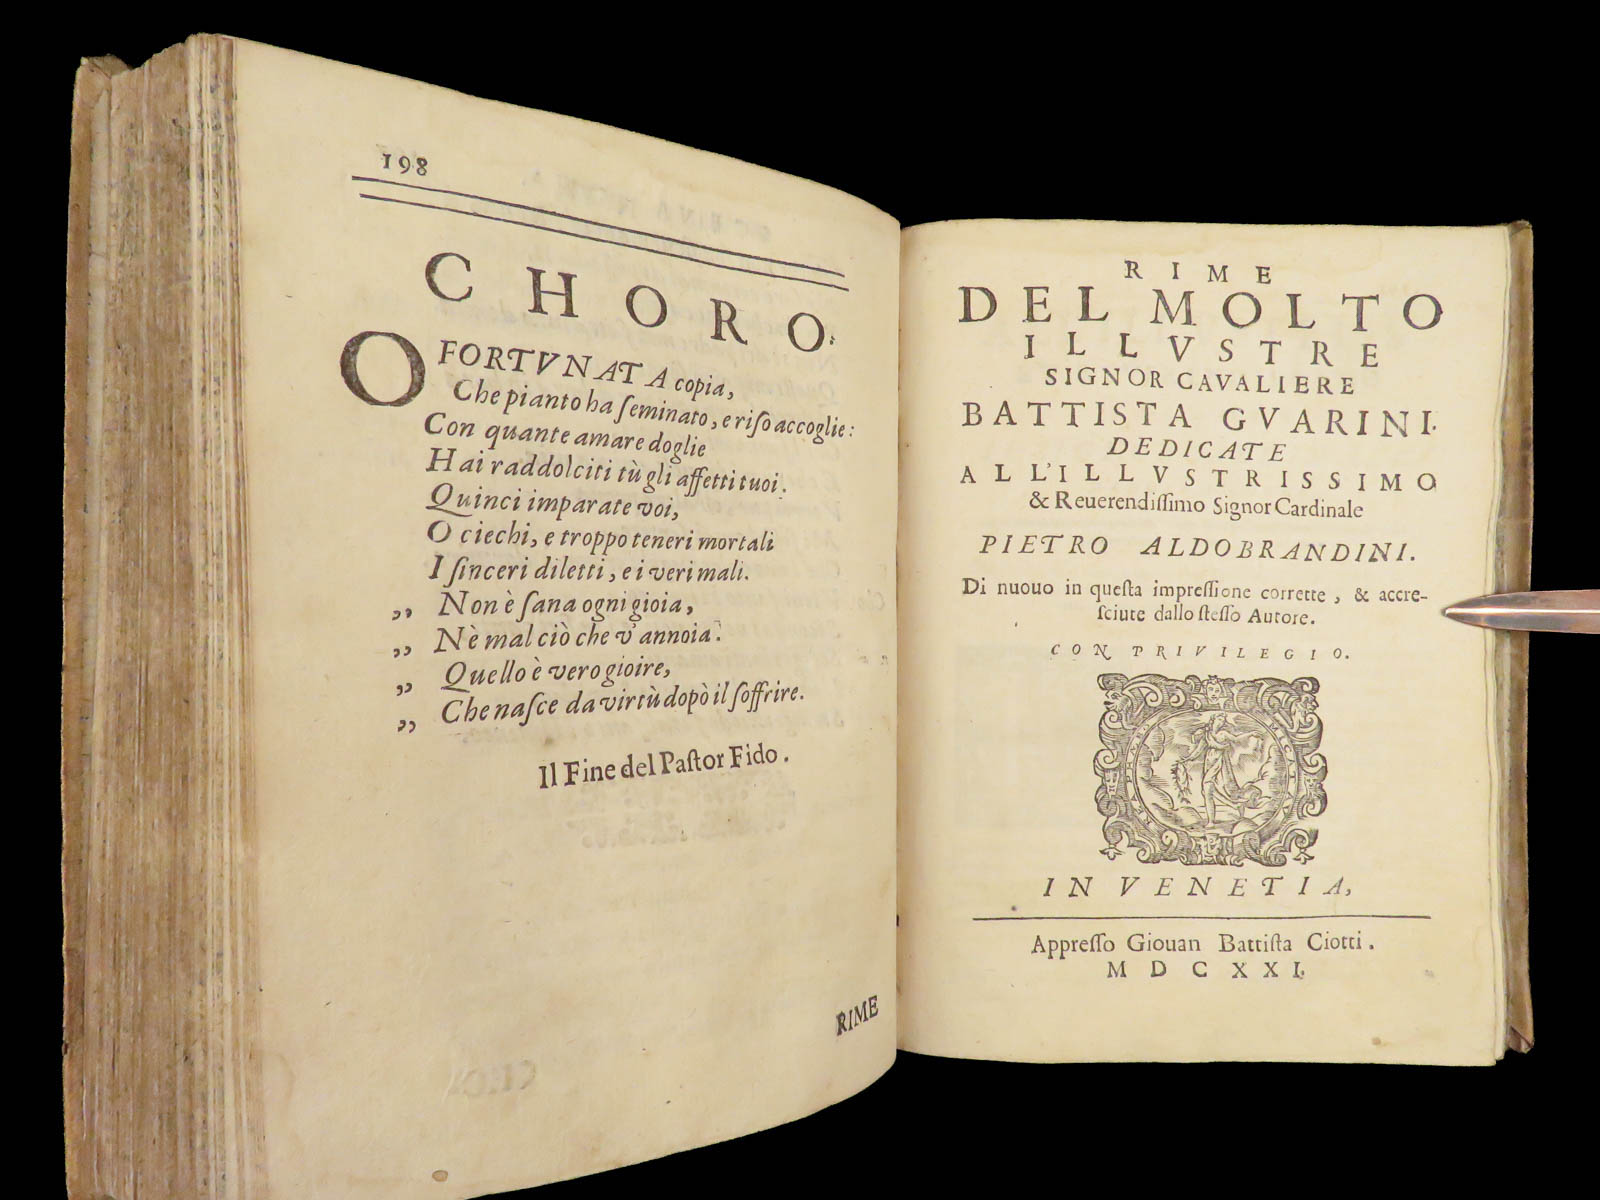 198
CHORO.
O FORTVNATA copia,
Che pianto ha ſeminato, e riſo accoglie:
Con quante amare doglie
Hai raddolciti tù gli affetti tuoi.
Quinci imparate voi,
O ciechi, e troppo teneri mortali
I ſinceri diletti, e i veri mali.
,, Non è ſana ogni gioia,
,, Nè mal ciò che v'annoia.
,, Quello è vero gioire,
,, Che naſce da virtù dopò il ſoffrire.
Il Fine del Paſtor Fido.
RIME
RIME
DEL MOLTO
ILLVSTRE
SIGNOR CAVALIERE
BATTISTA GVARINI.
DEDICATE
ALL'ILLVSTRISSIMO
& Reuerendiſſimo Signor Cardinale
PIETRO ALDOBRANDINI.
Di nuouo in queſta impreſſione corrette, & accre-
ſciute dallo ſteſſo Autore.
CON PRIVILEGIO.
IN VENETIA,
Appreſſo Giouan Battiſta Ciotti.
MDCXXI.